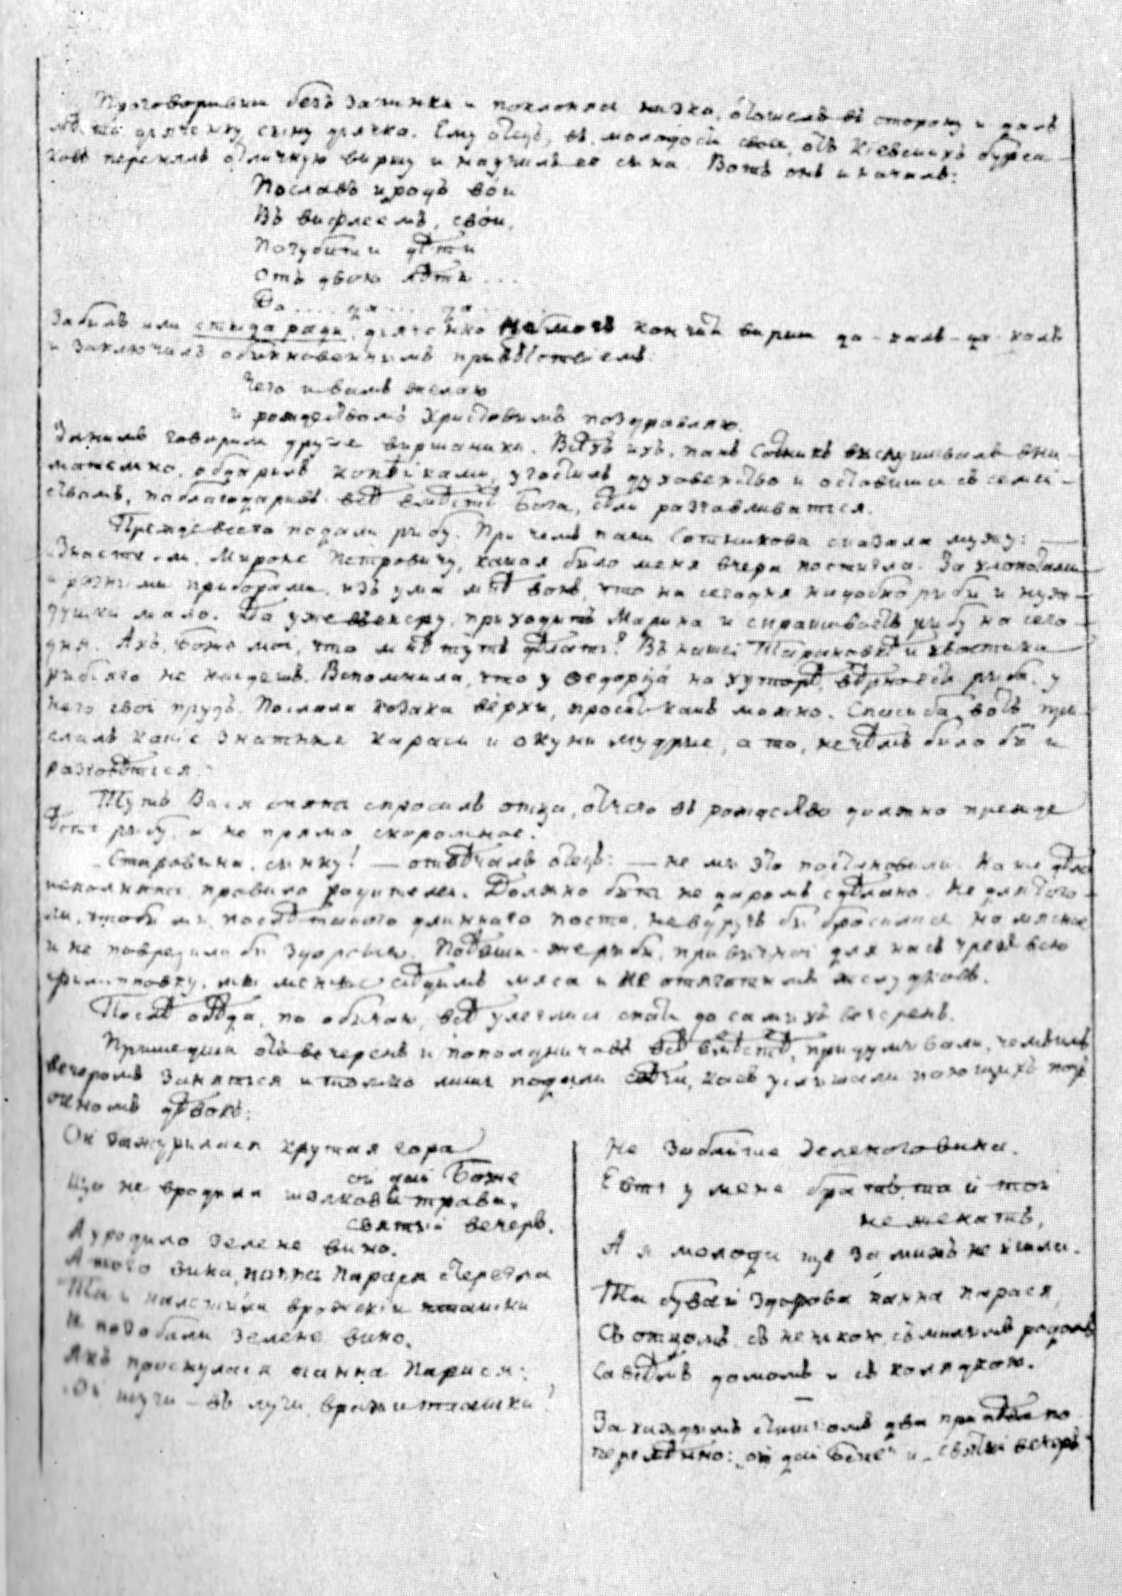 Проговоривши безъ запинки и поклонясь низко, отошелъ въ сторону и далъ
мѣсто дяченку, сыну дячка. Ему отецъ, въ молодости своей, отъ Кіевскихъ бурса-
ковъ перенялъ отличную виршу и научилъ ее сына. Вотъ онъ и началъ:
Пославъ иродъ вои
Въ вифлеемъ, свои,
Погубити дѣти
Отъ двою лѣти ...
Да .... ца .... ца ....
Забылъ или стыда ради, дяченко не могъ кончить вирши да-калъ-ца-калъ
и заключилъ обыкновеннымъ привѣтствіемъ:
Чего и вамъ желаю
и рождествомъ Христовымъ поздравляю.
За нимъ говорили другіе виршаники. Всѣхъ ихъ, панъ Сотникъ выслушивалъ вни-
мательно, обдарилъ копѣйками, угостилъ духовенство и оставшись съ семей-
ствомъ, поблагодаривъ всѣ вмѣстѣ Бога, сѣли разгавливаться.
Прежде всего подали рыбу. При чемъ пани Сотникова сказала мужу: —
Знаете-ли, Миронъ Петровичу, какая было меня вчера постигла. За хлопотами
и разными приборами, изъ ума мнѣ вонъ, что на сегодня надобно рыбы и нуж-
души мало. Да уже ввечеру, приходитъ Марина и спрашиваетъ рыбу на сего-
дня. Ахъ, Боже мой, что мнѣ тутъ дѣлать? Въ нашей Тарановкѣ и хвостика
рыбьяго не найдешь. Вспомнила, что у Федорца на хуторѣ, вѣрно есть рыба, у
него свой прудъ. Послала козака верхи, просить какъ можно. Спасибо, вотъ при-
слалъ какіе знатные караси и окуни мудрые, а то, нечѣмъ было бы и
разговѣться.
Тутъ Вася опять спросилъ отца, отчего въ рождество должно прежде
ѣсть рыбу, а не прямо скоромное.
— Старовина, сынку! — отвѣчалъ отецъ: — не мы это постановили. Наше дѣло
исполнять правило родителей. Должно быть не даромъ сдѣлано. Не для того-
ли, чтобы мы, послѣ такого длиннаго поста, не вдругъ бы бросились на мясное
и не повредило бы здоровью. Поѣвши-же рыбы, привычной для насъ чрезъ всю
филипповку, мы меньше съѣдимъ мяса и не отяготимъ желудковъ.
Послѣ обѣда, по обычаю, всѣ улеглись спать до самихъ вечерень.
Пришедши отъ вечерень и пополудничавъ всѣ вмѣстѣ, придумывали, чѣмъ-бы
вечеромъ заняться и только лишь подали свѣчи, какъ услышали поющихъ подъ
окномъ дѣвокъ:
Ой зажурилась крутая гора
ой дай Боже
Що не вродила шолкова трава.
святый вечеръ.
А уродило зелене вино.
А того вина, панна Парася стерегла
Та и налетіли врожскіи пташки
И подзобали зелене вино.
Якъ проснулася панна Парася:
"Ой шуги — въ луги, вражи пташки!
Не зоблійте зеленого вина.
Есть у мене братъ, та й той
не жекатъ,
А я молода ще за мижъ не ишла.
Та бувай здорова панна Парася,
Съ отцомъ, съ ненькою, съ милымъ родомъ
Со всѣмъ домомъ и съ колядкою.
За каждымъ стишкомъ два припѣва по-
перемѣнно: "ой дай Боже" и "святый вечеръ"